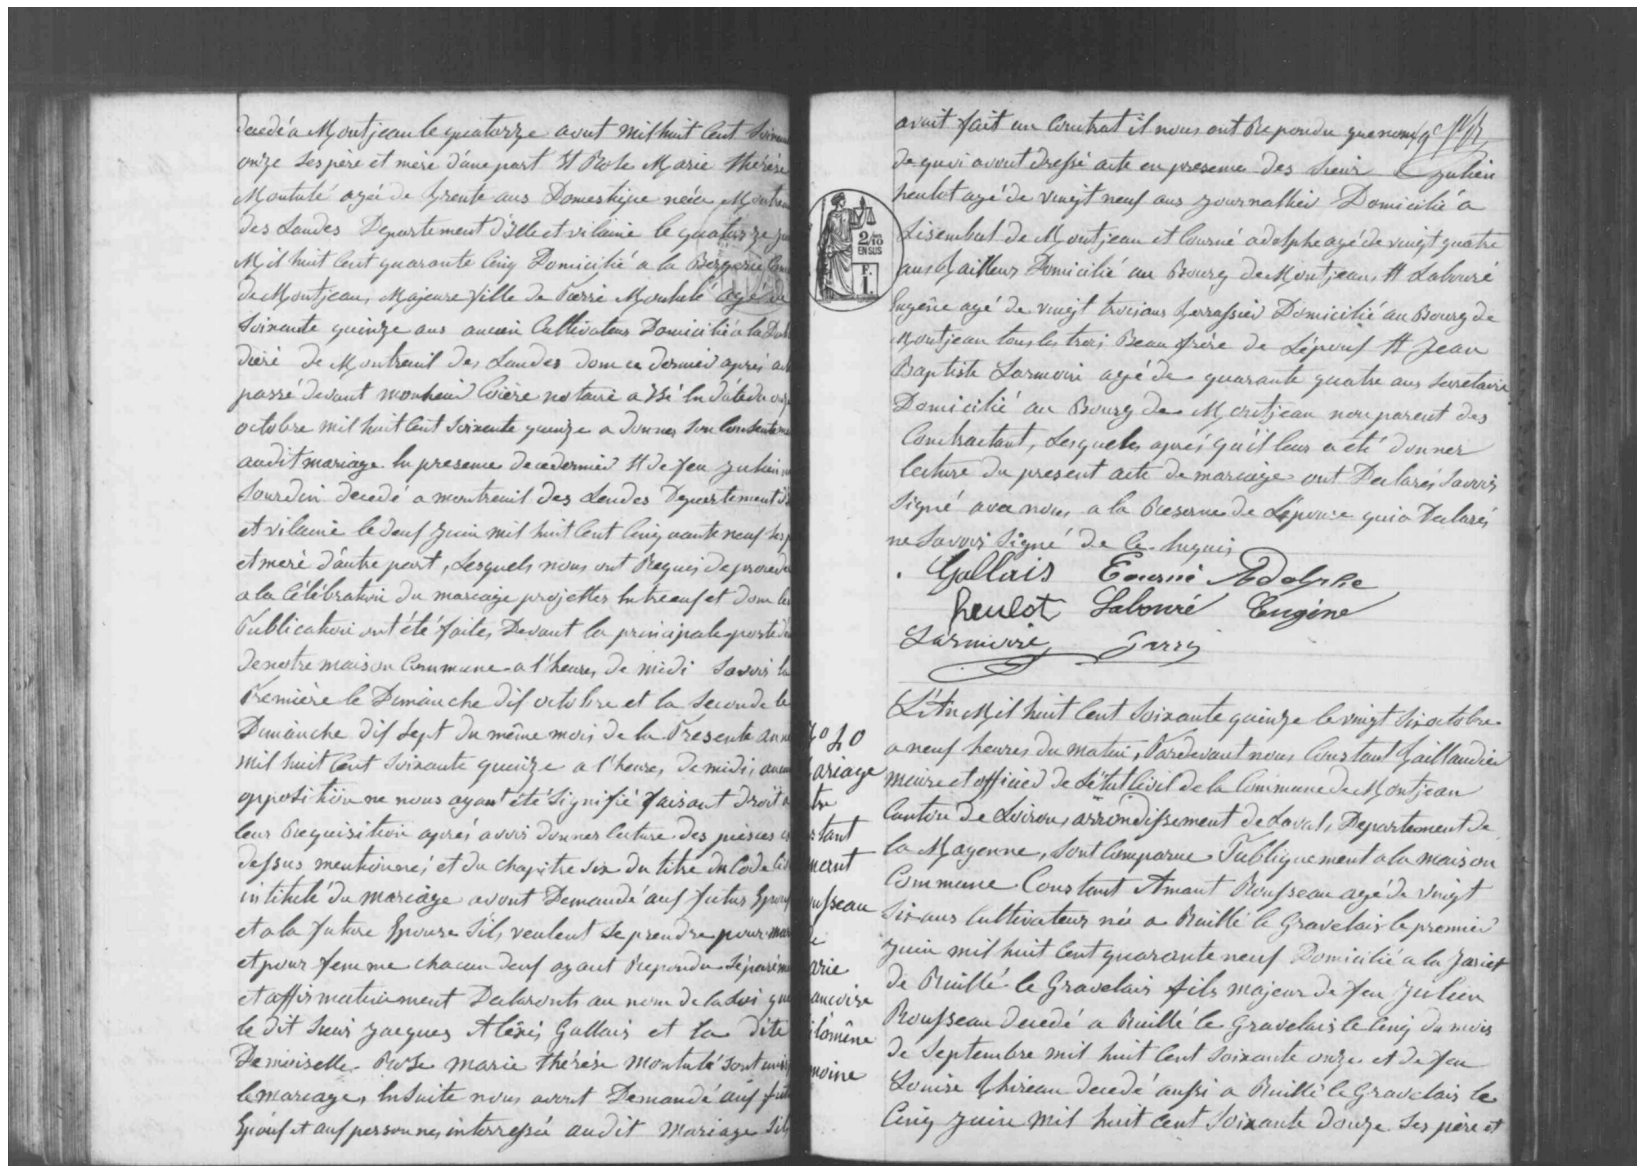 decedé a Montjean le quatorze aout mil huit cent soixante
onze ses père et mère d'une part et Rose Marie thérèse
Montulé agée de trente ans Domestique née a Montreuil
des Landes Departement d'ille et vilaine le quatorze
Mil huit cent quarante cinq Domicilié a la Bergerie
de Montjean, Majeure fille de Pierre Montulé agé de
soixante quinze ans ancien Cultivateur Domicilié a la
de Montreuil des Landes dom ce dernier après
passé devant monsieur notaire a en date du onze
octobre mil huit cent soixante quinze a donner son consentement
audit mariage en presence de ce dernier et de feu julienne
Jourdin decedé a montreuil des Landes Departement d'
et vilaine le deux juin mil huit cent cinquante neuf ses père
et mère d'autre part, Lesquels nous ont Requis de proceder
a la Célébration du mariage projetter entreeux et dont les
Publication ont été faites, Devant la principale porte de
de notre maison Commune a l'heure, de midi savoir la
Première le Dimanche dix octobre et la seconde le
Dimanche dix sept du même mois de la Presente année
mil huit cent soixante quinze a l'heure, de midi, aucune
opposition ne nous ayant été signifié faisant droit a
leur Requisition après avoir donner lecture des pièces ci
dessus mentionné, et du chapitre six du titre du Code civil
intitulé du mariage avont Demandé aux futur Epoux
et a la future Epouse s'ils, veulent se prendre pour mari
et pour femme chacun deux ayant Repondu séparément
et affirmativement Declaronts au nom de la Loi que
le dit sieur Jacques Alexis Gallais et la dite
Demoiselle Rose marie thérèse Montulé sont unis par
le mariage, ensuite nous avont Demandé aux futur
Epoux et aux personnes interressée audit mariage s'ils
avait fait un Contrat il nous ont Repondu que non
de quoi avont dressé acte en presence des sieur Julien
heulot agé de vingt neuf ans journallier Domicilié a
Lisembal de Montjean et Courné adolphe agé de vingt quatre
ans tailleur Domicilié au Bourg de Montjean, et Labouré
Eugène agé de vingt trois ans terrassier Domicilié au Bourg de
Montjean tous les trois Beau frère de L'époux et Jean
Baptiste Larmoiré agé de quarante quatre ans secretaire
Domicilié au Bourg de Montjean non parent des
Contractant, Lesquels après qu'il leur a été donner
lecture du present acte de mariage ont Declarés savoir
signé avec nous, a la Reserve de L'épouse qui a Declarés
ne savoir signé de Ce Enquis
Gallais Courné Adolphe
heulot Labouré Eugène
Larmoiré
2/10
EN SUS
F.
1.
No 40
Mariage
entre
Constant
Amant
Rousseau
de
Marie
francoise
filomène
moine
L'An Mil huit cent soixante quinze le vingt six octobre
a neuf heures du matin, Pardevant nous Constant Taillandier
maire et officier de L'état Civil de la Commune de Montjean
Canton de Loiron, arrondissement de Laval, Departement de
la Mayenne, sont Comparue Publiquement a la maison
Commune Constant Amant Rousseau agé de vingt
six ans Cultivateur née a Ruillé le Gravelais le premier
juin mil huit cent quarante neuf Domicilié a la Jariet
de Ruillé le Gravelais fils majeur de feu Julien
Rousseau decedé a Ruillé le Gravelais le cinq du mois
de septembre mil huit cent soixante onze et de feu
Louise decedé aussi a Ruillé le Gravelais le
Cinq juin mil huit cent soixante douze ses père et